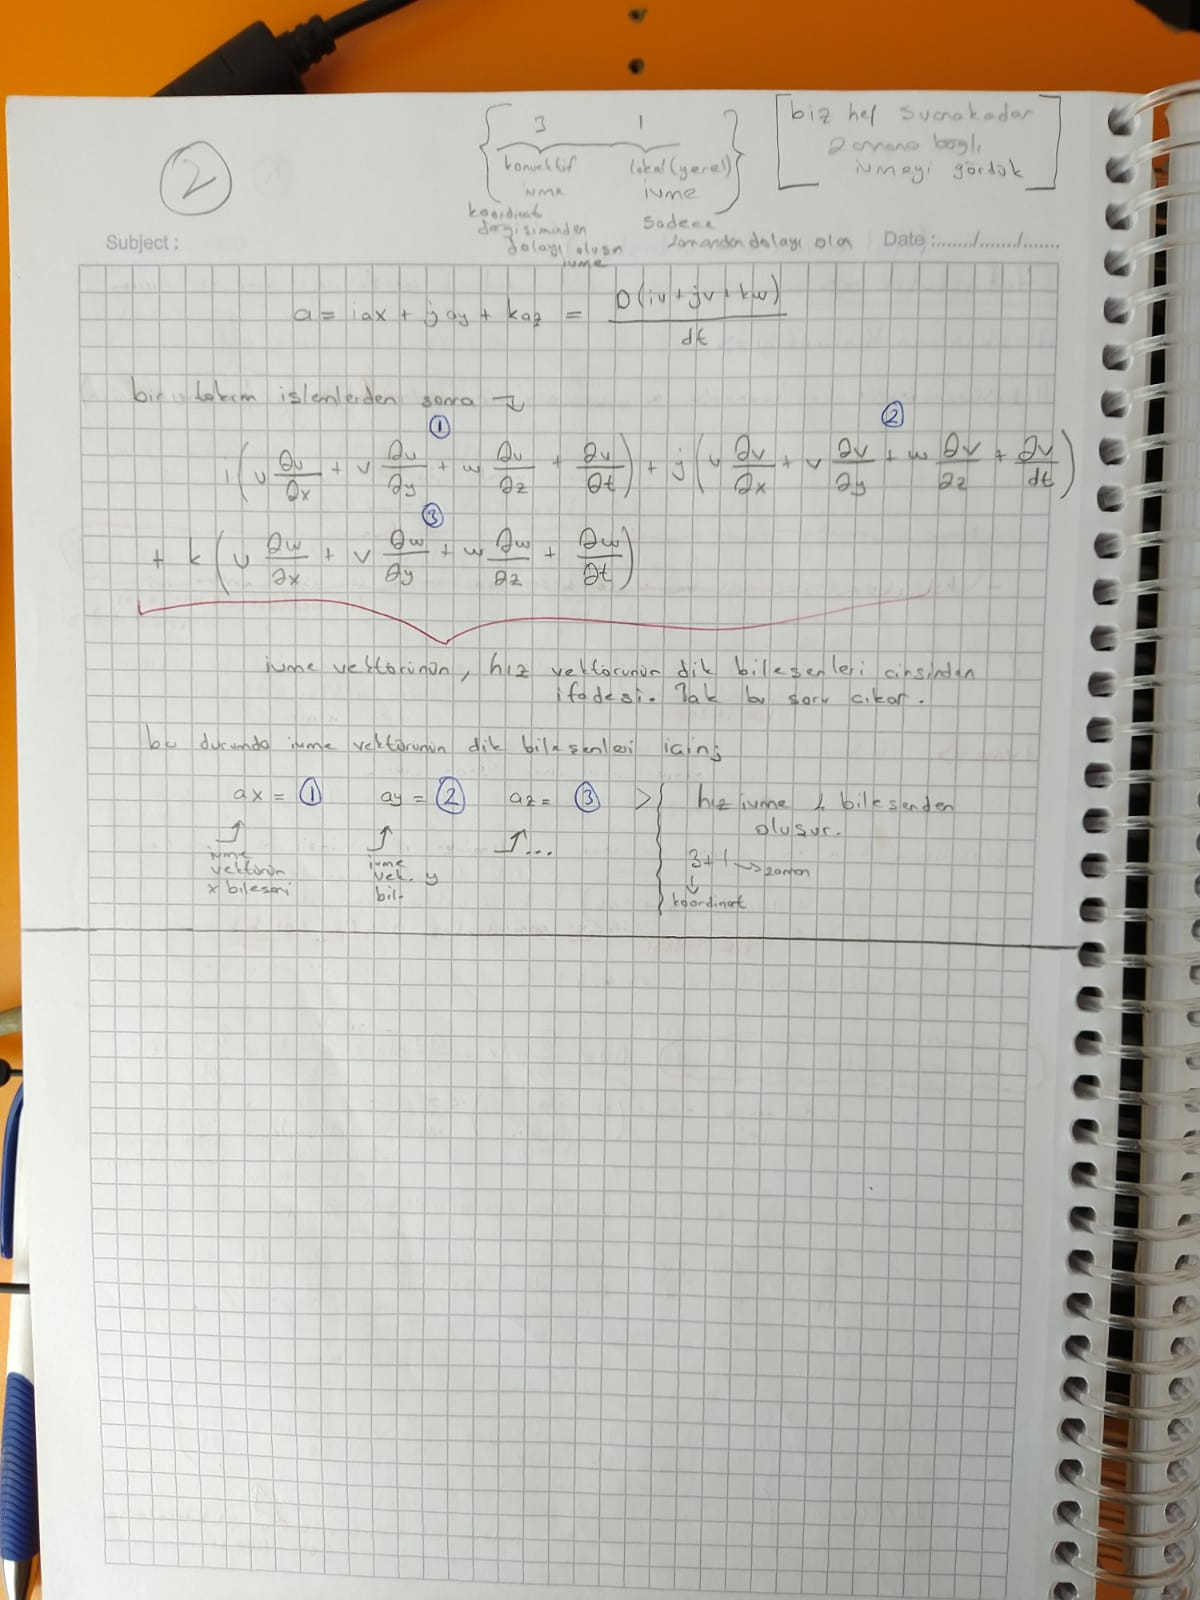 2
3 1
konvektif lokal(yerel)
ivme ivme
koordinat
değişiminden
dolayı oluşan
ivme
sadece
zamandan dolayı olan
biz hep şuana kadar
zamana bağlı
ivmeyi gördük
Subject : Date :......./......./.......
a = iax + jay + kaz = D(iu + jv + kw) / dt
bir takım işlemlerden sonra
①
②
i(u ∂u/∂x + v ∂u/∂y + w ∂u/∂z + ∂u/∂t) + j(u ∂v/∂x + v ∂v/∂y + w ∂v/∂z + ∂v/dt)
③
+ k(u ∂w/∂x + v ∂w/∂y + w ∂w/∂z + ∂w/∂t)
ivme vektörünün, hız vektörünün dik bileşenleri cinsinden
ifadesi. bu soru çıkar.
bu durumda ivme vektörünün dik bileşenleri için;
ax = ① ay = ② az = ③ >
ivme
vektörün
x bileşeni
ivme
vek. y
bil.
...
hız ivme 4 bileşenden
oluşur.
3+1 → zaman
↓
koordinat